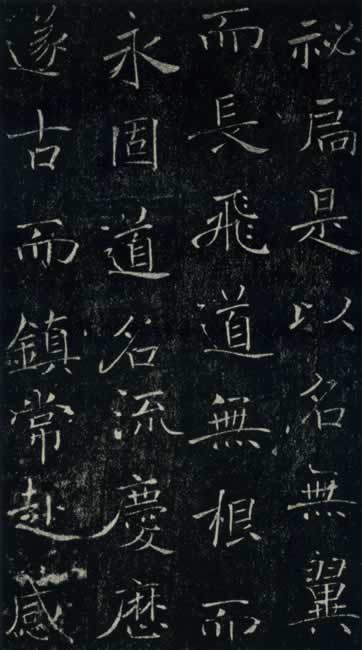 祕扃是以名無翼
而長飛道無根而
永固道名流慶歷
遂古而鎮常赴感